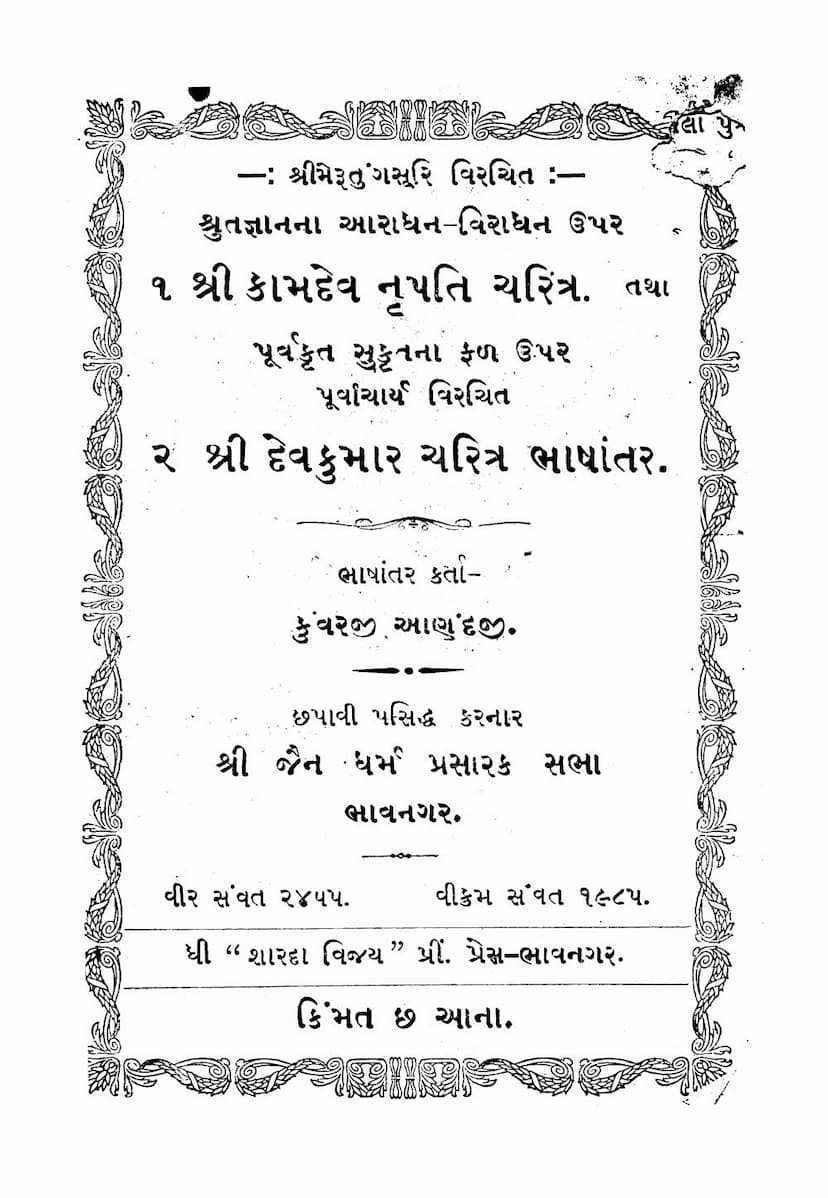 પુત્ર
—: શ્રીમેરૂતુંગસૂરિ વિરચિત :—
શ્રુતજ્ઞાનના આરાધન-વિરાધન ઉપર
૧ શ્રી કામદેવ નૃપતિ ચરિત્ર. તથા
પૂર્વકૃત સુકૃતના ફળ ઉપર
પૂર્વાચાર્ય વિરચિત
૨ શ્રી દેવકુમાર ચરિત્ર ભાષાંતર.
ભાષાંતર કર્તા-
કુંવરજી આણંદજી.
છપાવી પસિદ્ધ કરનાર
શ્રી જૈન ધર્મ પ્રસારક સભા
ભાવનગર.
વીર સંવત ૨૪૫૫. વીક્રમ સંવત ૧૯૮૫.
ધી “શારદા વિજય” પ્રીં. પ્રેસ-ભાવનગર.
કિંમત છ આના.